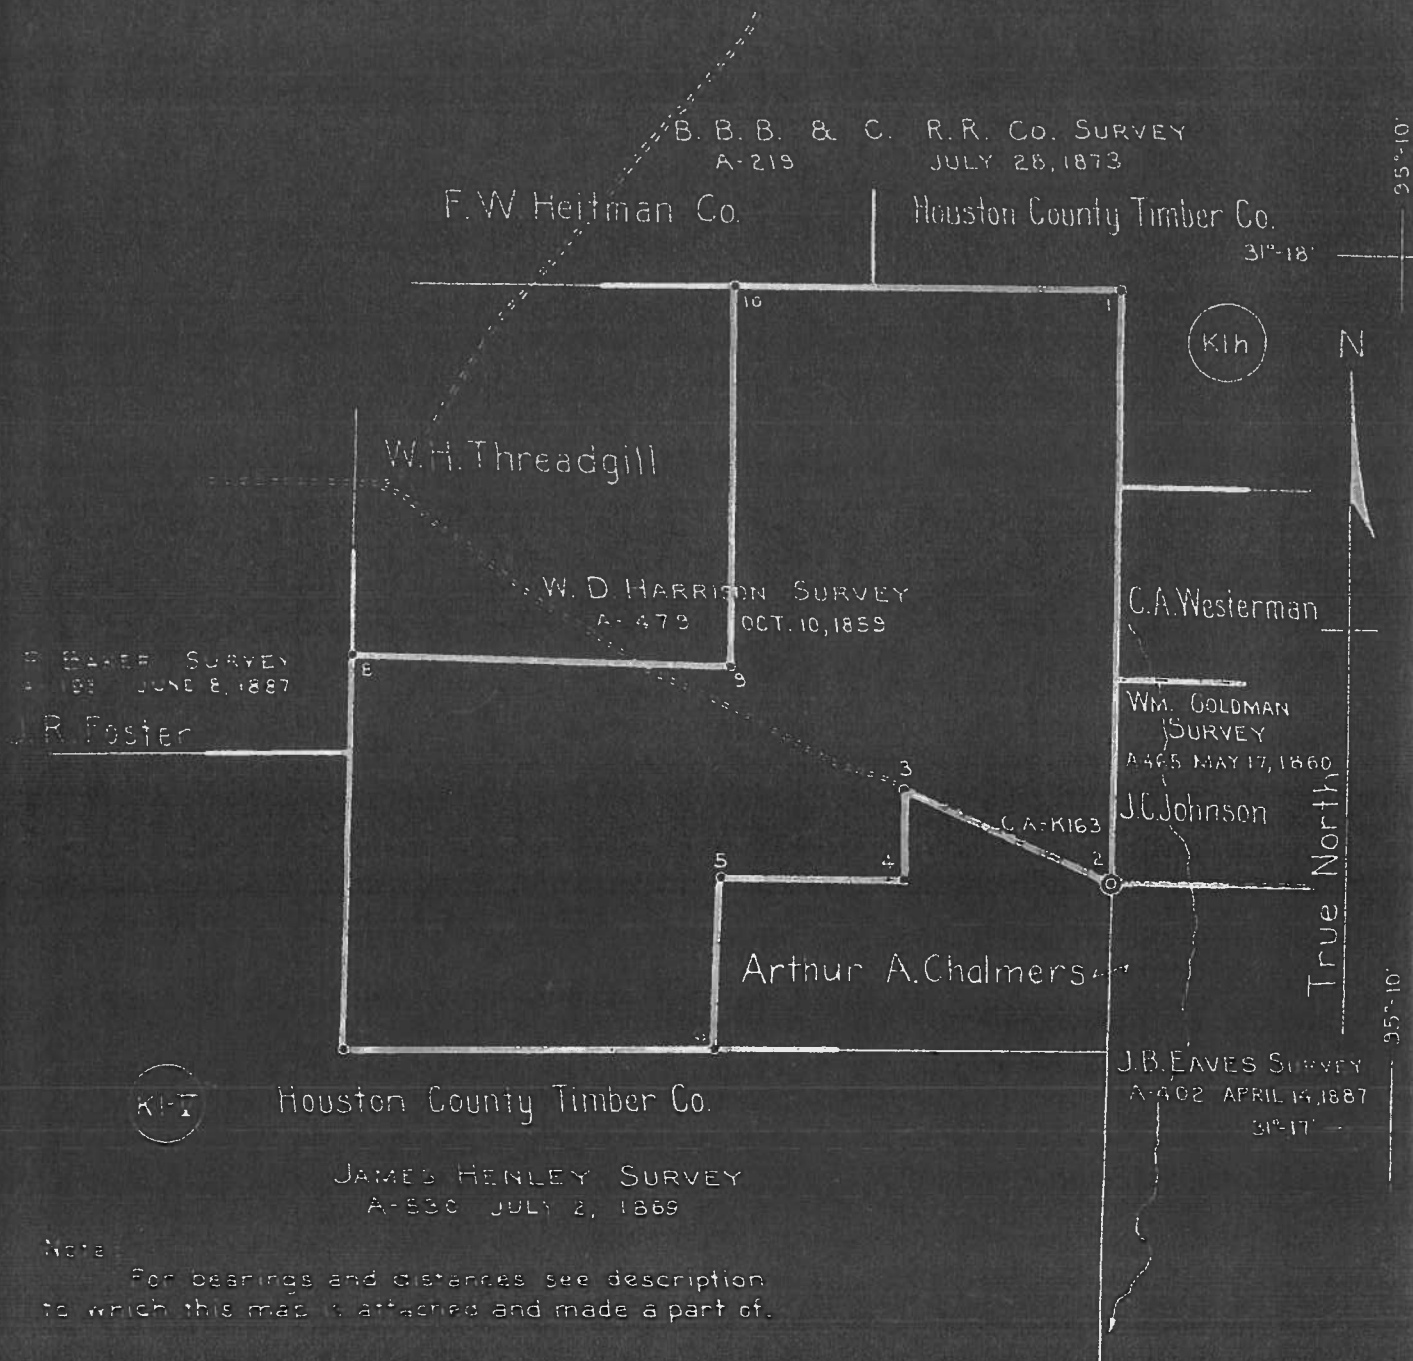 B. B. B. & C. R.R. Co. SURVEY
A-219 JULY 28, 1873
95°-10'
F. W. Heitman Co.
Houston County Timber Co.
31°-18'
10
1
K1h
N
W. H. Threadgill
W. D. HARRISON SURVEY
A-479 OCT. 10, 1859
C.A. Westerman
BAKER SURVEY
JUNE 8, 1887
8
9
WM. GOLDMAN
SURVEY
A465 MAY 17, 1860
J. R. Foster
3
C.A-K163
J.C. Johnson
2
5
4
True North
Arthur A. Chalmers
95°-10'
6
J. B. EAVES SURVEY
A-402 APRIL 14, 1887
31°-17'
K1-I
Houston County Timber Co.
JAMES HENLEY SURVEY
A-530 JULY 2, 1869
Note:
For bearings and distances see description
to which this map is attached and made a part of.